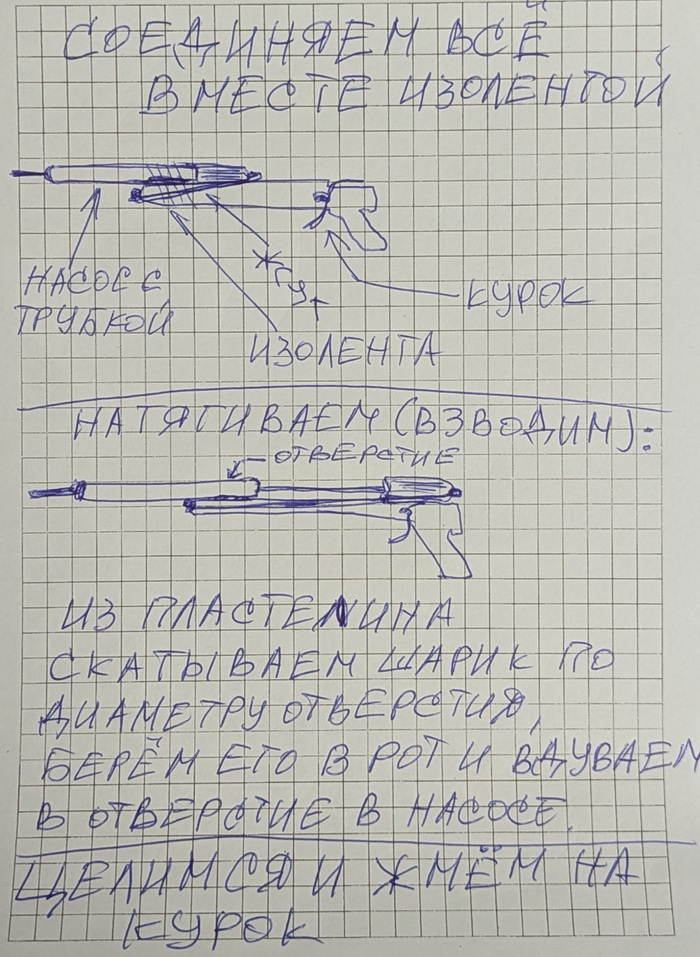 СОЕДИНЯЕМ ВСЁ
ВМЕСТЕ ИЗОЛЕНТОЙ
НАСОС С
ТРУБКОЙ
ЖГУТ
КУРОК
ИЗОЛЕНТА
НАТЯГИВАЕМ (ВЗВОДИМ):
ОТВЕРСТИЕ
ИЗ ПЛАСТЕЛИНА
СКАТЫВАЕМ ШАРИК ПО
ДИАМЕТРУ ОТВЕРСТИЯ,
БЕРЁМ ЕГО В РОТ И ВДУВАЕМ
В ОТВЕРСТИЕ В НАСОСЕ.
ЦЕЛИМСЯ И ЖМЁМ НА
КУРОК